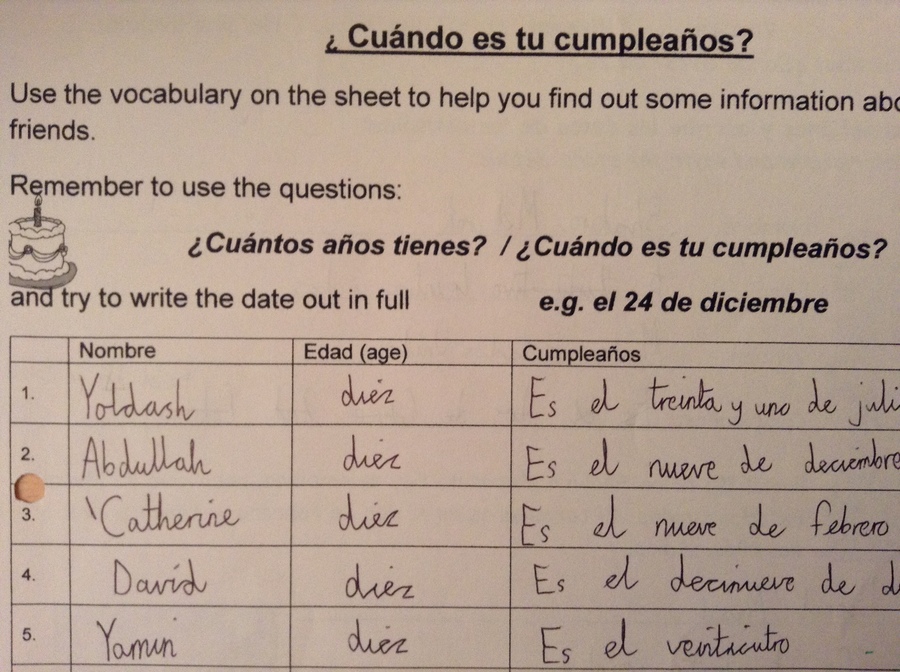 ¿ Cuándo es tu cumpleaños?
Use the vocabulary on the sheet to help you find out some information abo
friends.
Remember to use the questions:
¿Cuántos años tienes? / ¿Cuándo es tu cumpleaños?
and try to write the date out in full e.g. el 24 de diciembre
Nombre Edad (age) Cumpleaños
1. Yoldash diez Es el treinta y uno de juli
2. Abdullah diez Es el nueve de deciembre
3. Catherine diez Es el nueve de febrero
4. David diez Es el decinueve de d
5. Yamin diez Es el